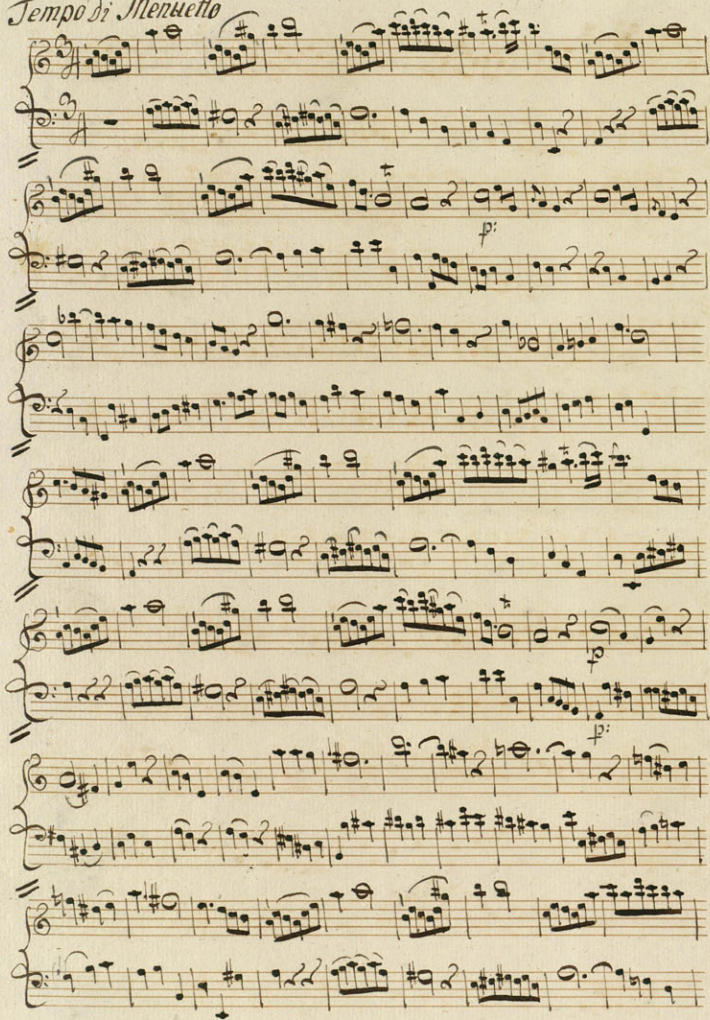 Tempo di Menuetto
3/4
3/4
p:
p
p: